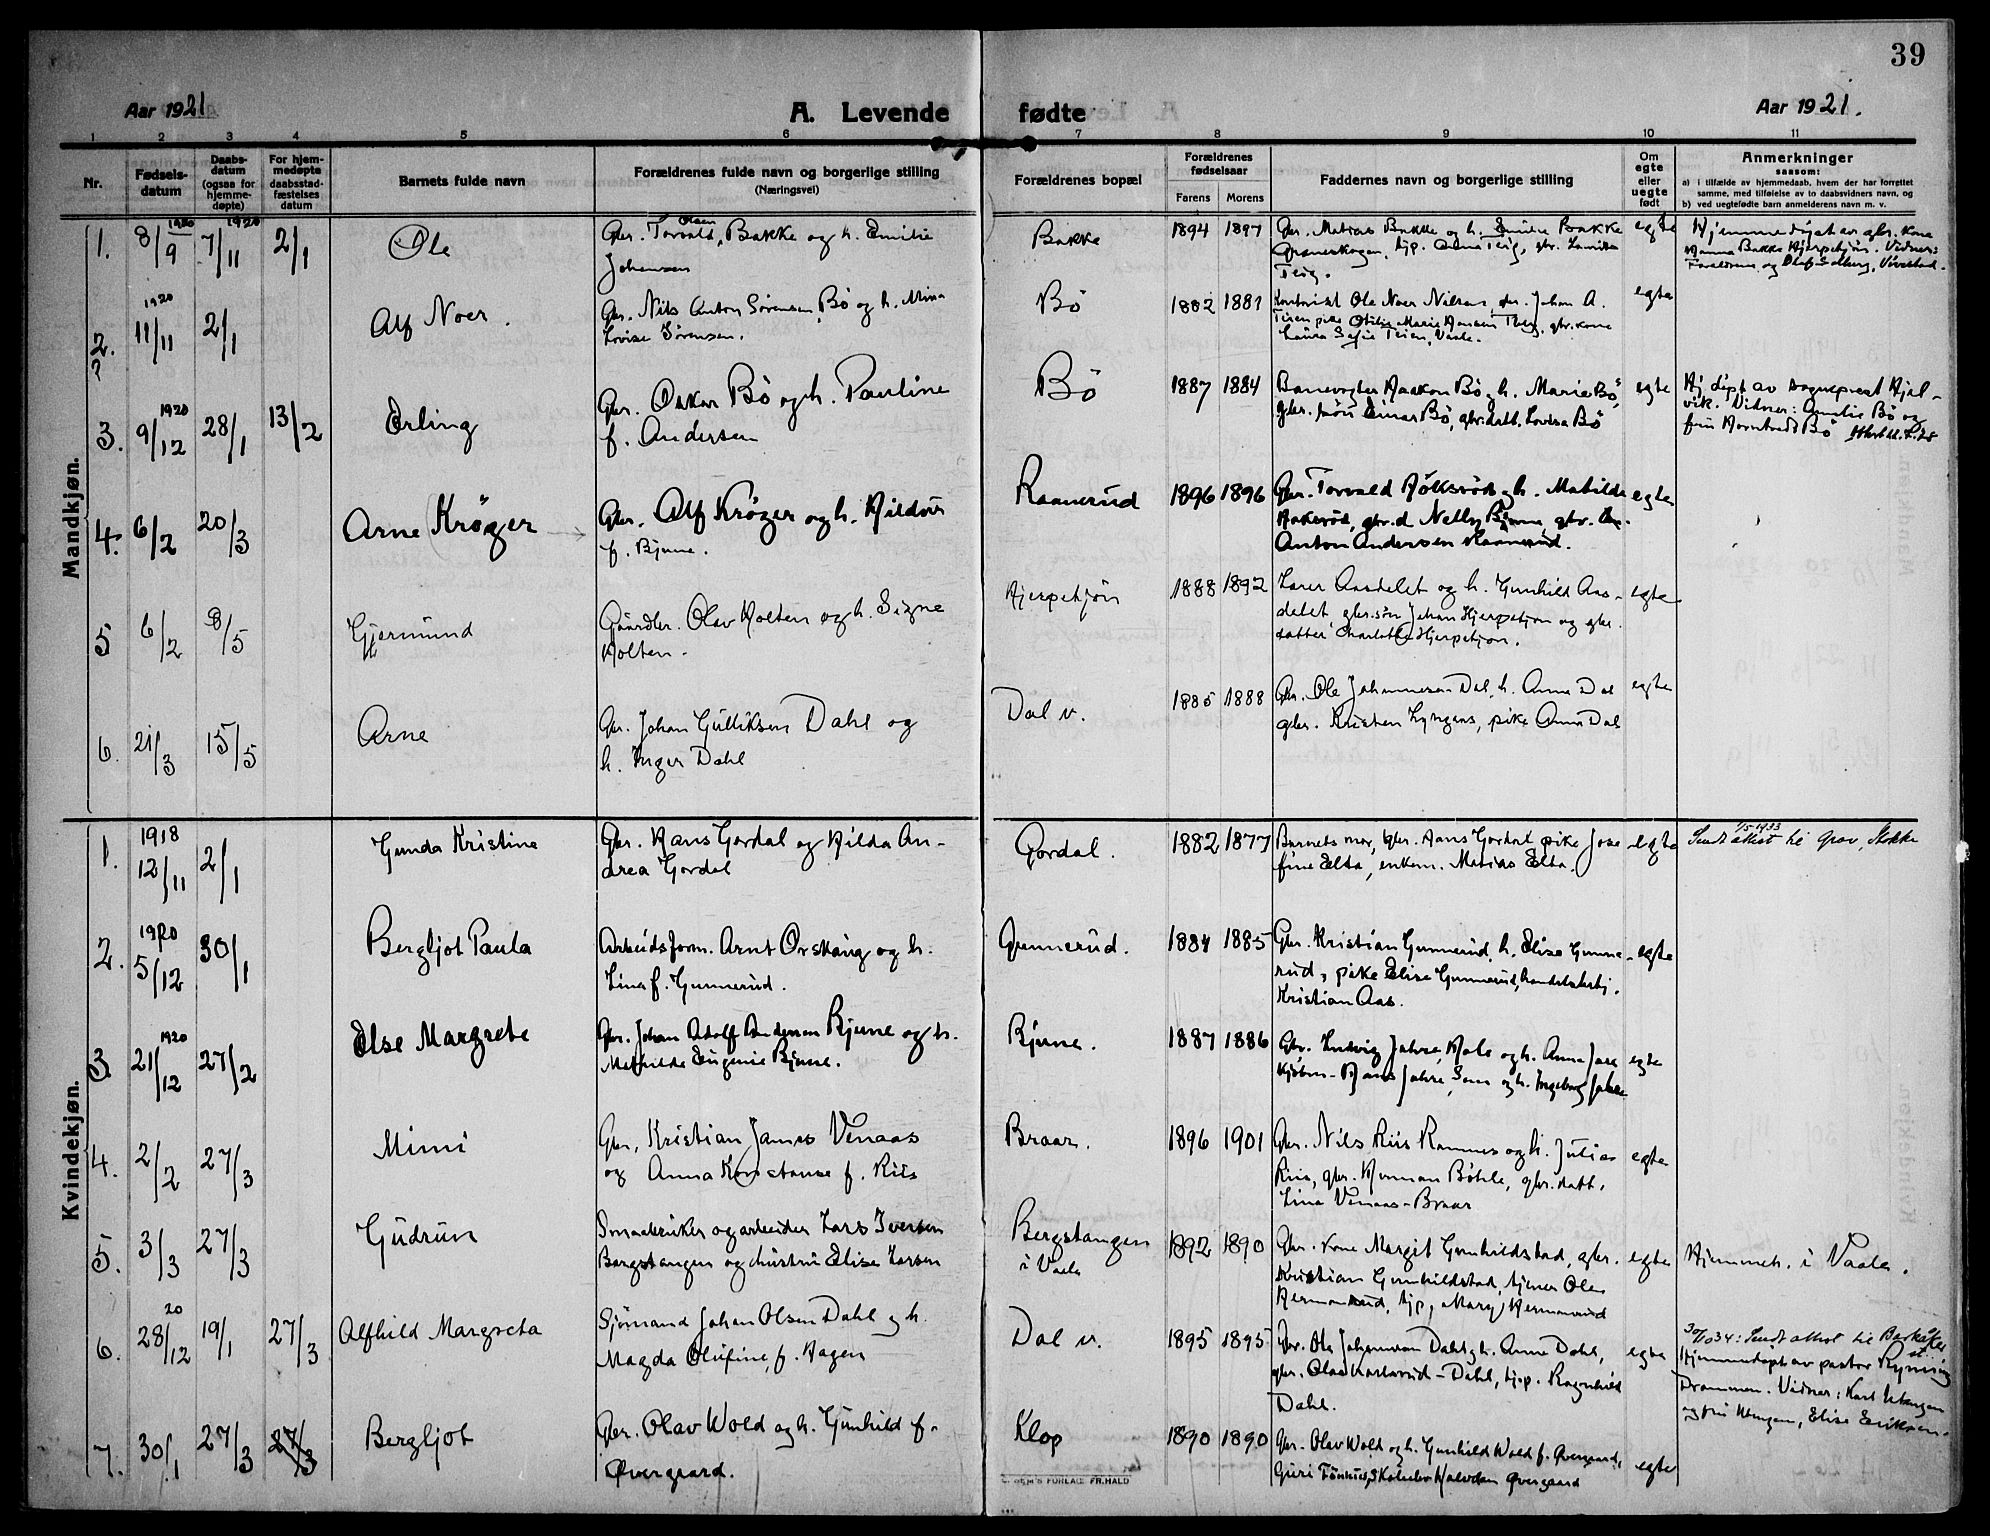 39
Aar 1921
A. Levende fødte
Aar 1921.
1 2 3 4 5 6 7 8 9 10 11
Nr.
Fødsels-
datum
Daabs-
datum
(ogsaa for
hjemme-
døpte)
For hjem-
medøpte
daabsstad-
fæstelses
datum
Barnets fulde navn
Forældrenes fulde navn og borgerlige stilling
(Næringsvei)
Forældrenes bopæl
Forældrenes
fødselsaar
Farens Morens
Faddernes navn og borgerlige stilling
Om
egte
eller
uegte
født
Anmerkninger
saasom:
a) i tilfælde av hjemmedaab, hvem der har forrettet
samme, med tilføielse av to daabsvidners navn, og
b) ved uegtefødte barn anmelderens navn m. v.
Mandkjøn.
1. 8/9 1920 7/11 1920 2/1 Ole
Gbr. Torvald Olsen Bakke og h. Emilie
Johansen
Bakke 1894 1897
Gbr. Matias Bakke og h. Emilie Bakke
Graneskogen, tjp. Anna Teig, gbr. Lauritz
Teig.
egte
Hjemmedøpt av gbr. kone
Hanna Bakke Hjerpetjøn. Vidner:
Forældrene og Olaf Solberg, Vivestad.
2. 1920 11/11 2/1 Alf Noer.
Gbr. Nils Anton Sørensen Bø og h. Mina
Lovise Sørensen.
Bø 1882 1881
Kontorist Ole Noer Nilsen, gbr. Johan A.
Teien pike Otilie Marie Hansen Teig, gbr.kone
Laura Sofie Teien, Vaale.
egte
3. 1920 9/12 28/1 13/2 Erling
Gbr. Oskar Bø og h. Pauline
f. Andersen
Bø 1887 1884
Banevogter Haakon Bø, h. Marie Bø,
gbr. søn Einar Bø, gbr.datt. Lovisa Bø
egte
Hj.døpt av sogneprest Hjel-
vik. Vidner: Amalie Bø og
fru Horntvedt Bø
4. 6/2 20/3 Arne (Krøger
Gbr. Alf Krøger og h. Hildur
f. Bjune.
Raanerud 1896 1896
Gbr. Torvald Hølksrød og h. Matilde
Aakerød, gbr.d Nelly Bjune, gbr.
Anton Andersen Raanerud.
egte
5 6/2 8/5 Gjermund
Gaardbr. Olav Holten og h. Signe
Holten.
Hjerpetjøn 1888 1892
Lærer Aasdelet og h. Gunhild Aas-
delet, gbr.søn Johan Hjerpetjøn og gbr.
datter Charlotte Hjerpetjøn.
egte
6. 21/3 15/5 Arne
Gbr. Johan Gulliksen Dahl og
h. Inger Dahl
Dal v. 1885 1888
Gbr. Ole Johannesen Dal, h. Anna Dal
gbr. Kristen Lyngaas, pike Anna Dal
egte
Kvindekjøn.
1. 1918 12/11 2/1 Gunda Kristine
Gbr. Hans Gordal og Hilda An-
drea Gordal
Gordal. 1882 1877
Barnets mor, gbr. Hans Gordal pike Jose
fine Elta, enkem. Matias Elta.
egte
1/5 1933
Sendt attest til Grav, Stokke
2. 1920 5/12 30/1 Bergljot Paula
Arbeidsform. Arnt Orskaug og h.
Lina f. Gunnerud.
Gunnerud. 1884 1885
Gbr. Kristian Gunnerud, h. Elise Gunne-
rud, pike Elise Gunnerud, handelsbetj.
Kristian Aas.
egte
3. 1920 21/12 27/2 Else Margrete
Gbr. Johan Adolf Andersen Bjune og h.
Mathilde Eugenie Bjune.
Bjune. 1887 1886
Gbr. Ludvig Jahre, Hole og h. Anna Jahre
Kjøbm. Hans Jahre, Sem og h. Ingeborg Jahre
egte
4. 2/2 27/3 Mimi
Gbr. Kristian James Venaas
og Anna Konstanse f. Riis
Braar. 1896 1901
Gbr. Nils Riis Ramnes og h. Julie
Riis, gbr. Herman Bøhle, gbr.datt.
Lina Venaas-Braar
egte
5. 3/3 27/3 Gudrun
Smaabruker og arbeider Lars Iversen
Bergstangen og hustru Elise Larsen
Bergstangen
i Vaale
1892 1890
Gbr. kone Margit Gunhildstad, gbr.
Kristian Gunhildstad, tjener Ole
Hermanrud, tjp. Mary Hermanrud
egte
Hjemmeh. i Vaale.
6. 20 28/12 19/1 27/3 Alfhild Margreta
Sjømand Johan Olsen Dahl og h.
Magda Olufine, f. Hagen
Dal v. 1895 1895
Gbr. Ole Johannesen Dahl og h. Anna Dahl,
gbr. Olaf Karlsrud-Dahl, tjp. Ragnhild
Dahl.
egte
30/10 34: Sendt attest til Barkaker st.
Hjemmedøpt av pastor Ryning
Drammen. Vidner: Karl Wengen
og fru Wengen, Elise Eriksen.
7. 30/1 27/3 27/3 Bergljot
Gbr. Olav Wold og h. Gunhild f.
Øvergaard.
Klop 1890 1890
Gbr. Olav Wold og h. Gunhild Wold f. Øvergaard,
Guri Tønnes, Halvdan Øvergaard
egte
FORLAG FR. HALD